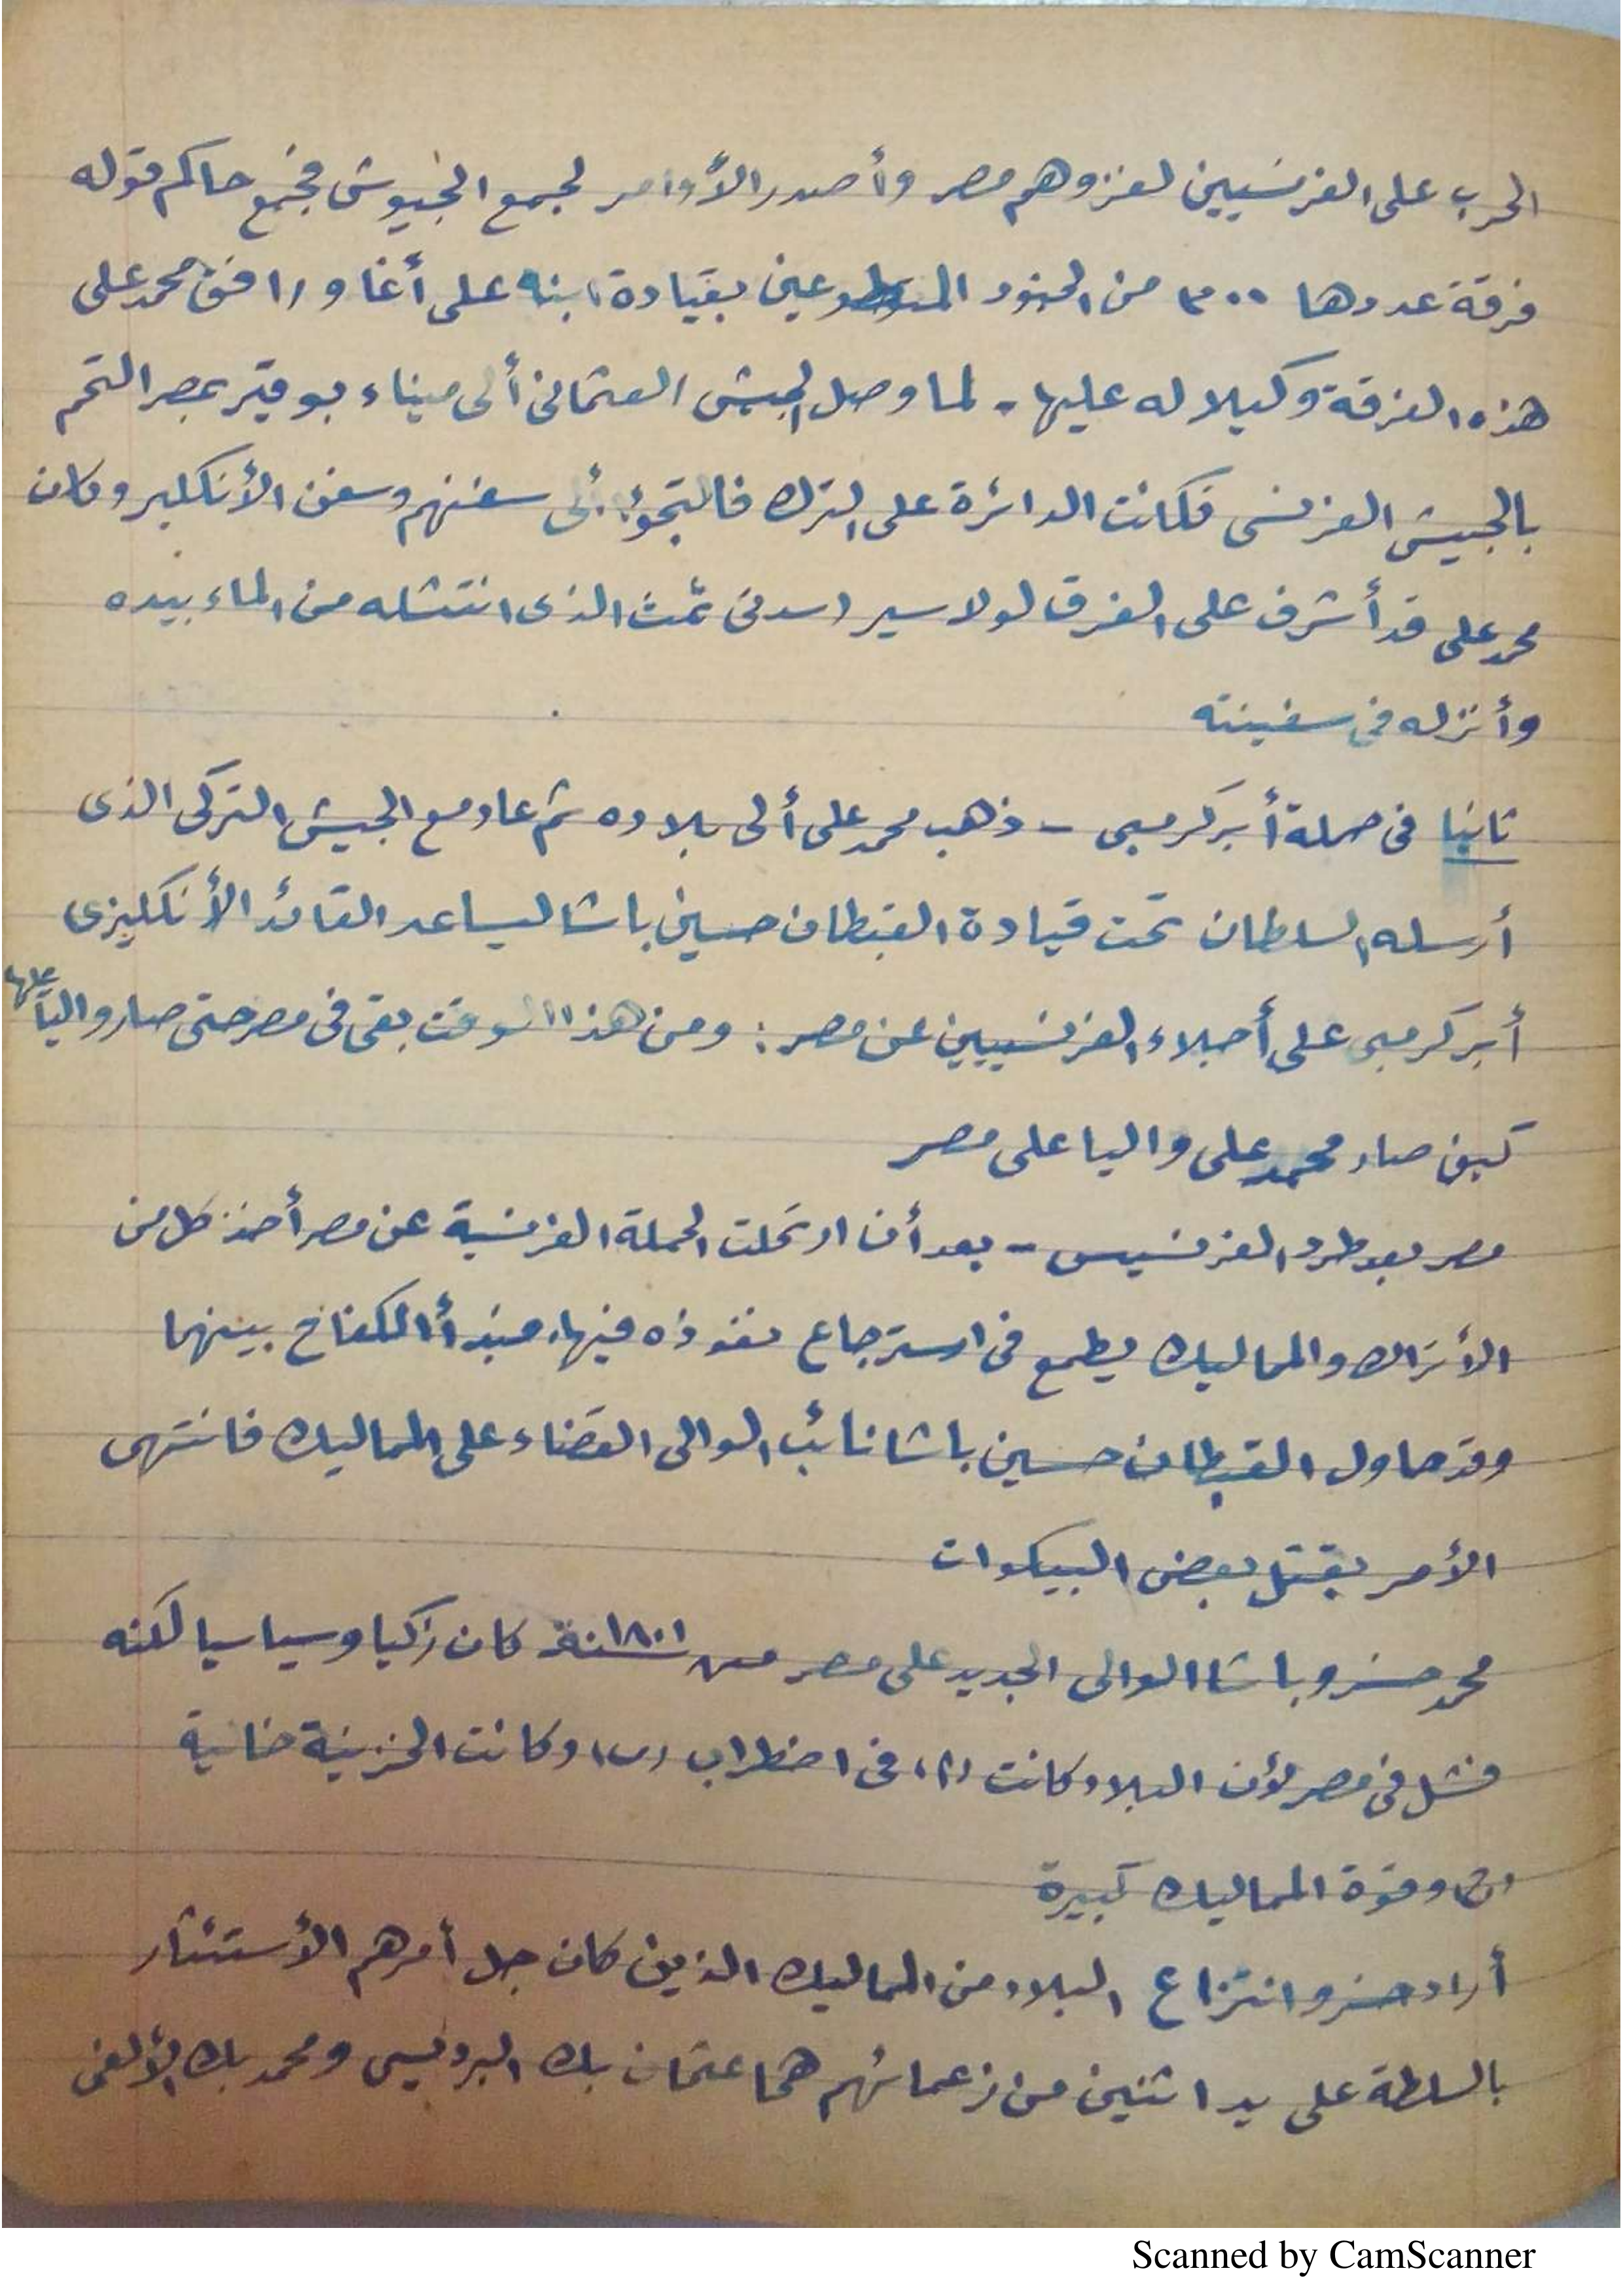 الحرب على الفرنسيين لغزوهم مصر وأصدر الأوامر لجمع الجيوش فجمع حاكم قوله
فرقة عددها ٣٠٠ من الجنود المتطوعين بقيادة ابنه على أغا ورافق محمد على
هذه الفرقة وكيلا له عليها - لما وصل الجيش العثمانى ألى ميناء بوقير بمصر التحم
بالجيش الفرنسى فكانت الدائرة على الترك فالتجؤا ألى سفنهم وسفن الأنكليز وكان
محمد على قد أشرف على الغرق لولا سير سدنى سمث الذى انتشله من الماء بيده
وأنزله فى سفينته
ثانيا فى حملة أبركرمبى - ذهب محمد على ألى بلاده ثم عاد مع الجيش التركى الذى
أرسله السلطان تحت قيادة القبطان حسين باشا ليساعد القائد الأنكليزى
أبركرمبى على أجلاء الفرنسيين عن مصر: ومن هذا الوقت بقى فى مصر حتى صار واليا عليها
كيف صار محمد على واليا على مصر
مصر بعد طرد الفرنسيس - بعد أن ارتحلت الحملة الفرنسية عن مصر أخذ كل من
الأتراك والمماليك يطمع فى استرجاع نفوذه فيها، فبدأ الكفاح بينهما
وقد حاول القبطان حسين باشا نائب الوالى القضاء على المماليك فانتهى
الأمر بقتل بعض البيكوات
محمد خسرو باشا الوالى الجديد على مصر من سنة ١٨٠١ كان زكيا وسياسيا لكنه
فشل فى مصر لأن البلاد كانت (١) فى اضطراب (ب) وكانت الخزينة خالية
(ج) وقوة المماليك كبيرة
أراد خسرو انتزاع البلاد من المماليك الذين كان جل أمرهم الأستئثار
بالسلطة على يد اثنين من زعمائهم هما عثمان بك البرديسى ومحمد بك الألفى
Scanned by CamScanner